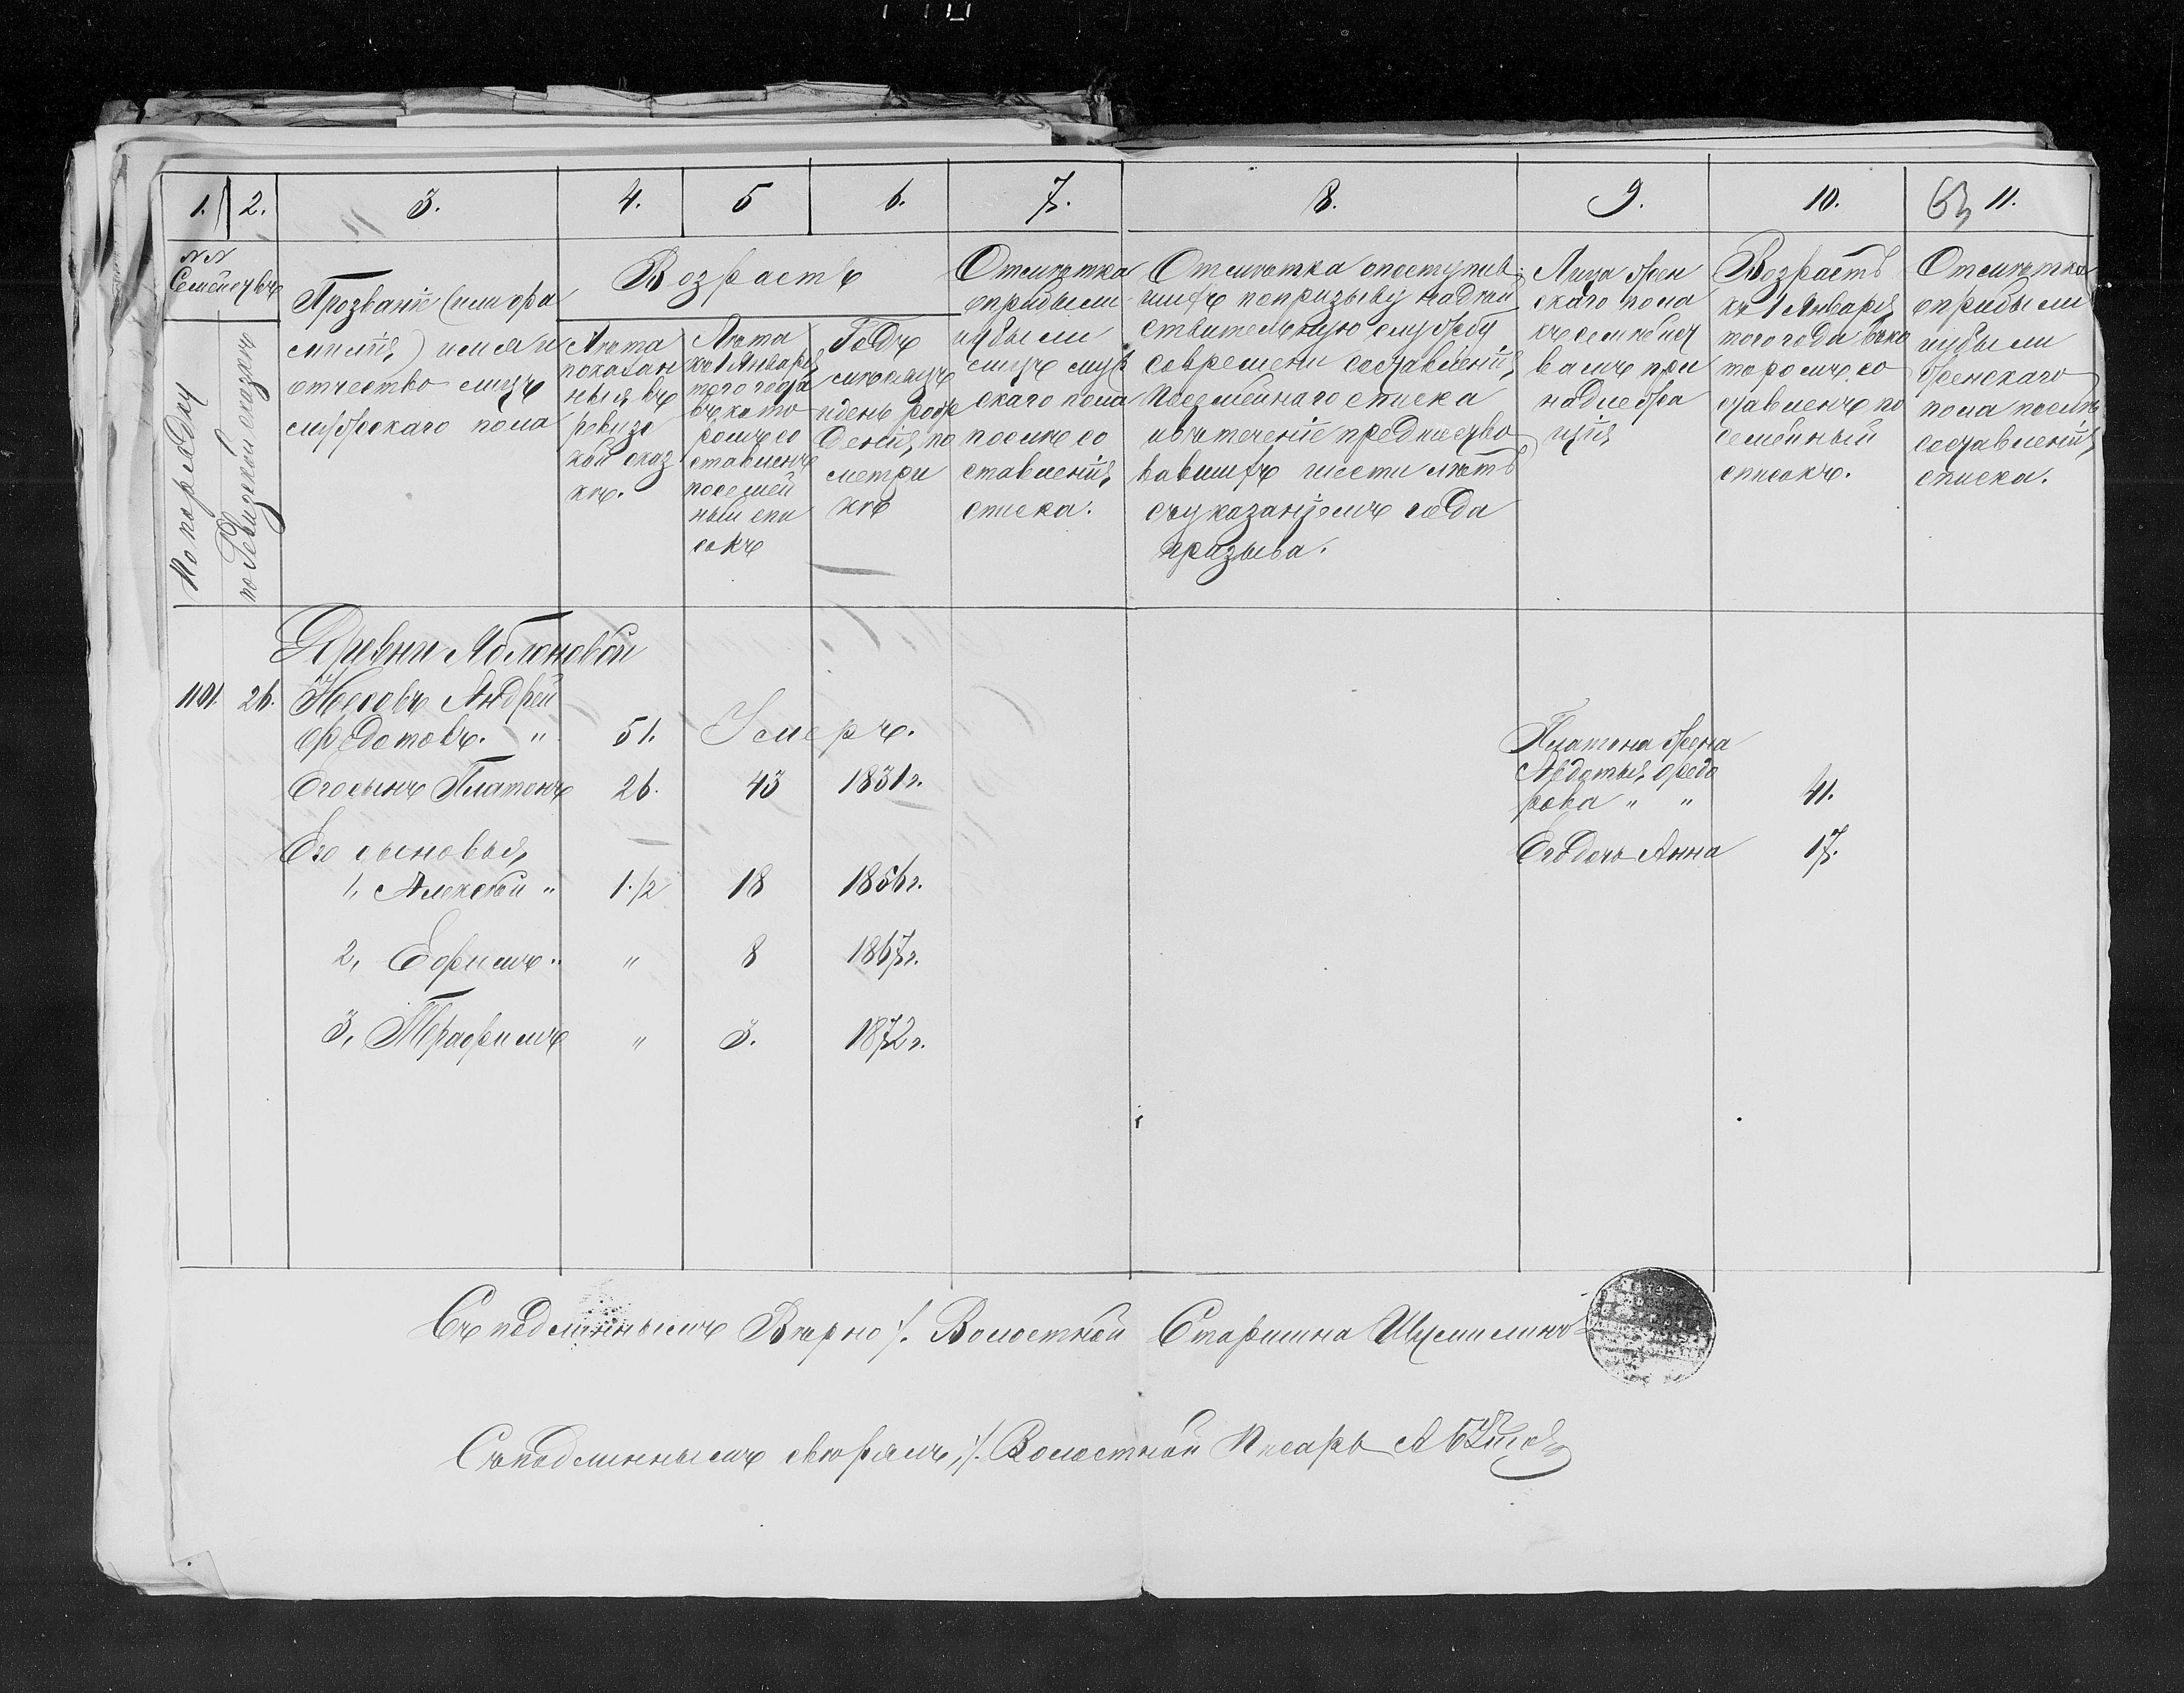 1. 2. 3. 4. 5 6. 7. 8. 9. 10. 63 11.
NN
Семействъ
По порядку
по Ревизской сказкѣ
Прозваніе (или фа
милія) имя и
отчество лицъ
мужскаго пола
Возрастъ
Лѣта
показан
ныя въ
ревизс
кой сказ
кѣ.
Лѣта
къ 1 Января
того года
въ кото
ромъ со
ставленъ
посемей
ный спи
сокъ
Годъ
мѣсяцъ
и день рож
денія по
метри
кѣ
Отмѣтка
о прибыли
и убыли
лицъ муж
скаго пола
послѣ со
ставленія
списка.
Отмѣтка о поступив
шихъ по призыву на дѣй
ствительную службу
со времени составленія
посемейнаго списка
и въ теченіе предшество
вавшихъ шести лѣтъ
съ указаніемъ года
призыва.
Лица жен
скаго пола
къ семейст
вамъ при
надлежа
щія
Возрастъ
къ 1 Января
того года въ ко
торомъ со
ставленъ по
семейный
списокъ.
Отмѣтка
о прибыли
и убыли
женскаго
пола послѣ
составленія
списка.
Деревни Яблоновой
1101. 26. Андрей
Федотовъ. " 51. Умеръ.
Его сынъ Платонъ 26. 43 1831 г.
Платона жена
Авдотья Федо
рова " " 41.
Его сыновья
Его дочь Анна 17.
1, Алексѣй " 1 1/2 18 1856 г.
2, Ефимъ " " 8 1867 г.
3, Трофимъ " 3. 1872 г.
Съ подлиннымъ Вѣрно /. Волостной Старшина Шумилинъ
Съ подлиннымъ свѣрялъ, /. Волостной Писарь А